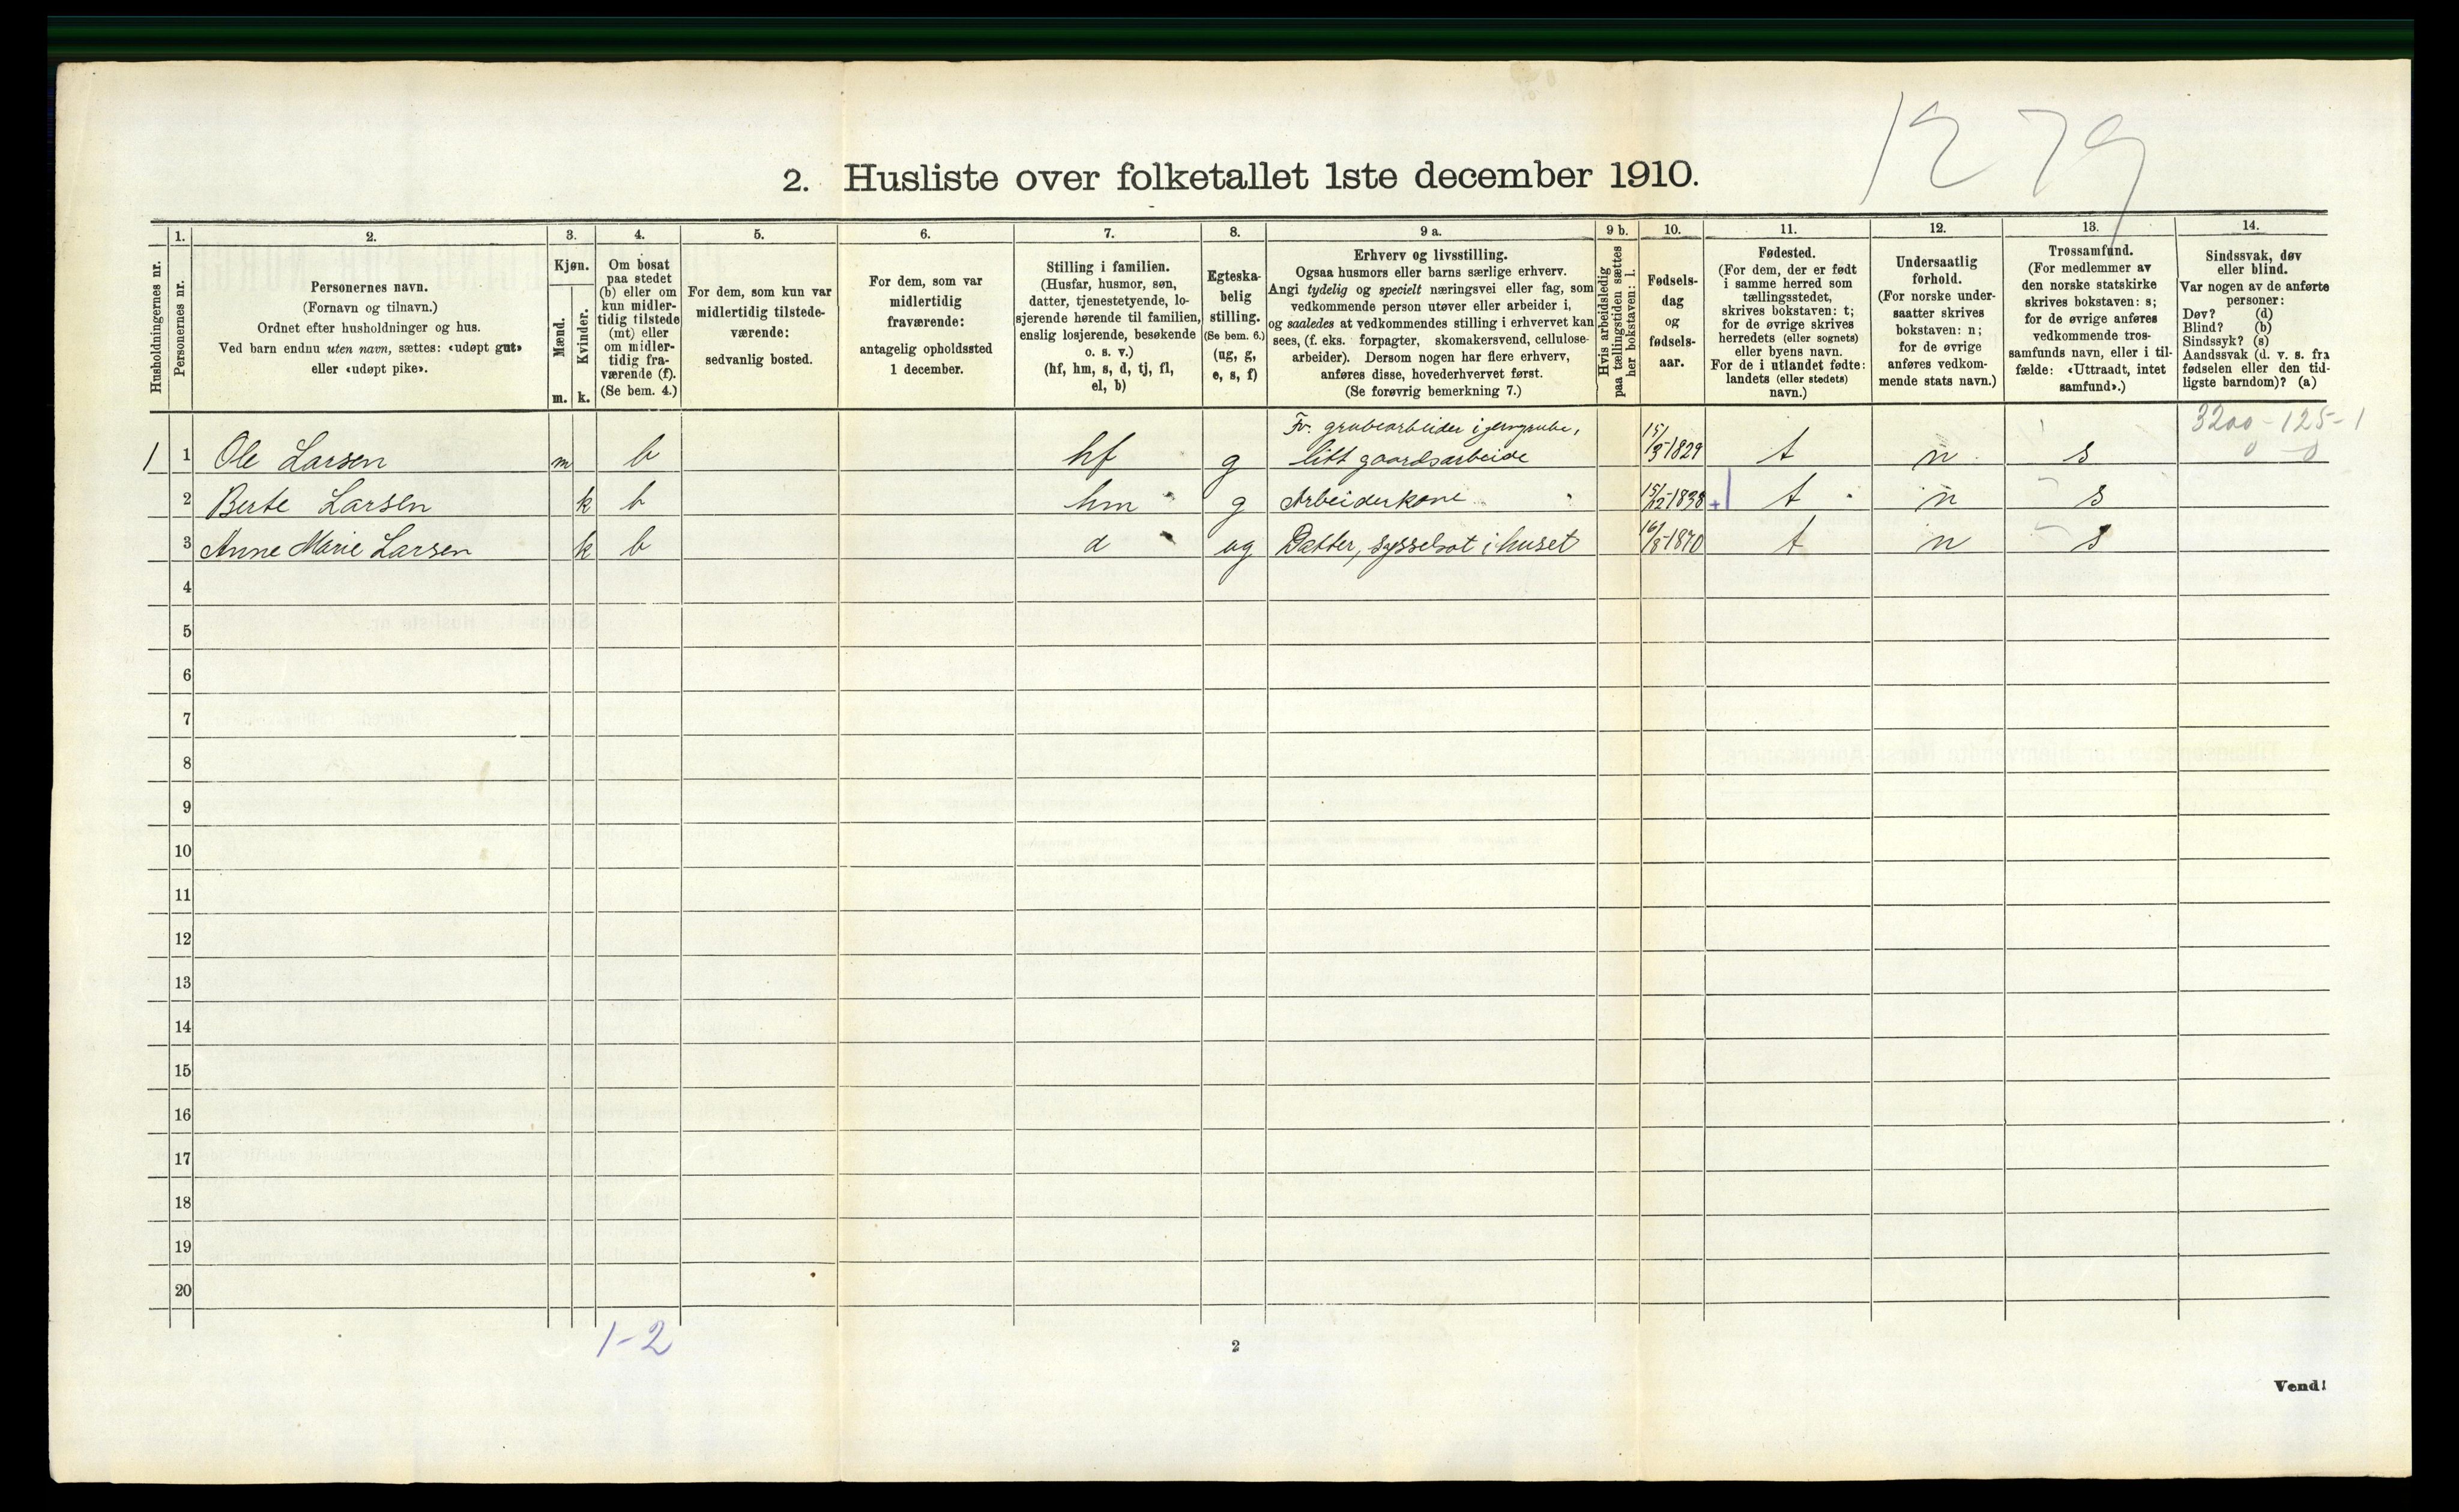 1279
2. Husliste over folketallet 1ste december 1910.
Husholdningernes nr.
1.
Personernes nr.
2.
Personernes navn.
(Fornavn og tilnavn.)
Ordnet efter husholdninger og hus.
Ved barn endnu uten navn, sættes: «udøpt gut»
eller «udøpt pike».
3.
Kjøn.
Mænd.
Kvinder.
m. k.
4.
Om bosat
paa stedet
(b) eller om
kun midler-
tidig tilstede
(mt) eller
om midler-
tidig fra-
værende (f).
(Se bem. 4.)
5.
For dem, som kun var
midlertidig tilstede-
værende:
sedvanlig bosted.
6.
For dem, som var
midlertidig
fraværende:
antagelig opholdssted
1 december.
7.
Stilling i familien.
(Husfar, husmor, søn,
datter, tjenestetyende, lo-
sjerende hørende til familien,
enslig losjerende, besøkende
o. s. v.)
(hf, hm, s, d, tj, fl,
el, b)
8.
Egteska-
belig
stilling.
(Se bem. 6.)
(ug, g,
e, s, f)
9 a.
Erhverv og livsstilling.
Ogsaa husmors eller barns særlige erhverv.
Angi tydelig og specielt næringsvei eller fag, som
vedkommende person utøver eller arbeider i,
og saaledes at vedkommendes stilling i erhvervet kan
sees, (f. eks. forpagter, skomakersvend, cellulose-
arbeider). Dersom nogen har flere erhverv,
anføres disse, hovederhvervet først.
(Se forøvrig bemerkning 7.)
9 b.
Hvis arbeidsledig
paa tællingstiden sættes
her bokstaven: l.
10.
Fødsels-
dag
og
fødsels-
aar.
11.
Fødested.
(For dem, der er født
i samme herred som
tællingsstedet,
skrives bokstaven: t;
for de øvrige skrives
herredets (eller sognets)
eller byens navn.
For de i utlandet fødte:
landets (eller stedets)
navn.)
12.
Undersaatlig
forhold.
(For norske under-
saatter skrives
bokstaven: n;
for de øvrige
anføres vedkom-
mende stats navn.)
13.
Trossamfund.
(For medlemmer av
den norske statskirke
skrives bokstaven: s;
for de øvrige anføres
vedkommende tros-
samfunds navn, eller i til-
fælde: «Uttraadt, intet
samfund».)
14.
Sindssvak, døv
eller blind.
Var nogen av de anførte
personer:
Døv? (d)
Blind? (b)
Sindssyk? (s)
Aandssvak (d. v. s. fra
fødselen eller den tid-
ligste barndom)? (a)
3200-125-1
0 0
Fv. grubearbeider i jerngrube,
1 1 Ole Larsen m b hf g litt gaardsarbeide 15/3-1829 t n s
2 Berte Larsen k b hm g Arbeiderkone 15/12-1838 + t n s
3 Anne Marie Larsen k b d ug Datter, sysselsat i huset 16/8-1870 t n s
4
5
6
7
8
9
10
11
12
13
14
15
16
17
18
19
20
1-2
2
Vend!